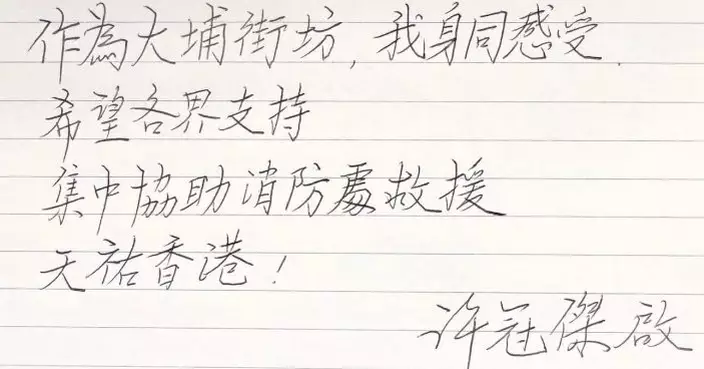 作為大埔街坊，我身同感受.
希望各界支持
集中協助消防處救援
天祐香港！
許冠傑 啟